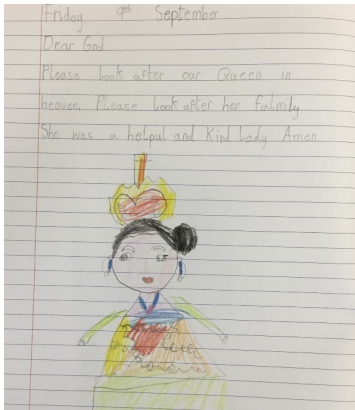 Friday 9th September
Dear God
Please look after our Queen in
heaven. Please look after her falmily
She was a helpul and Kind lady Amen